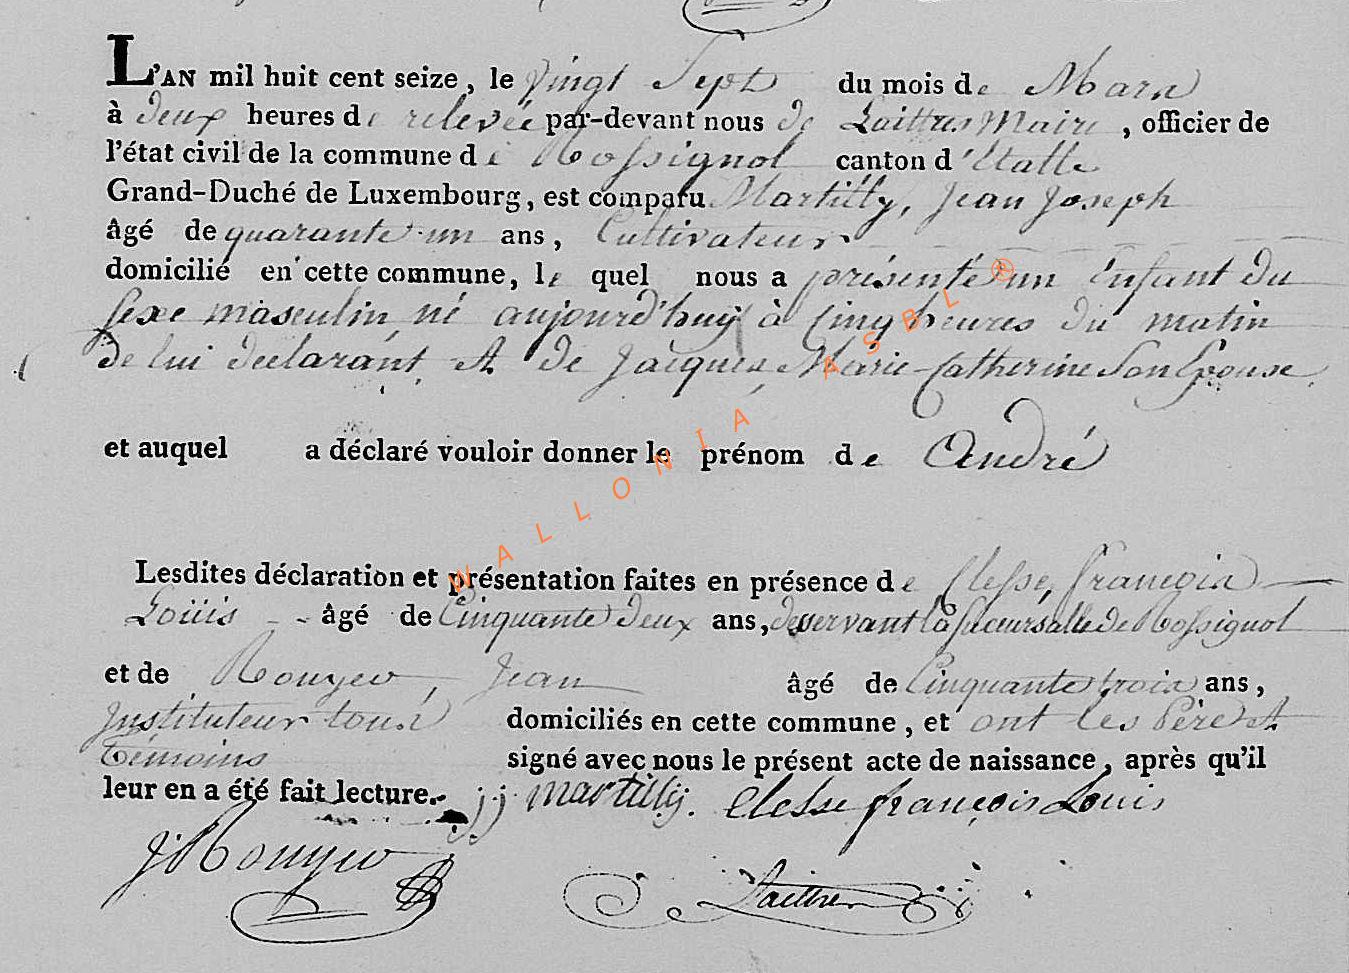 L'AN mil huit cent seize, le vingt Sept du mois de Mars
à deux heures de relevée par-devant nous de Laittres Maire, officier de
l'état civil de la commune de Rossignol canton d'Etalle
Grand-Duché de Luxembourg, est comparu Martilly, Jean Joseph
âgé de quarante un ans, Cultivateur
domicilié en cette commune, le quel nous a présenté un Enfant du
Sexe masculin né aujourd'huy à Cinq heures du matin
de lui declarant, et de Jacques, Marie-Catherine Son Epouse
et auquel a déclaré vouloir donner le prénom de André
Lesdites déclaration et présentation faites en présence de Clesse, François
Loüis âgé de Cinquante deux ans, desservant la Succursalle de Rossignol
et de Rouyer, Jean âgé de Cinquante trois ans,
Instituteur tous domiciliés en cette commune, et ont les Père et
témoins signé avec nous le présent acte de naissance, après qu'il
leur en a été fait lecture.
jj martilly. Clesse françois Louis
J Rouyer
Laittres
WALLONIA ASBL ®